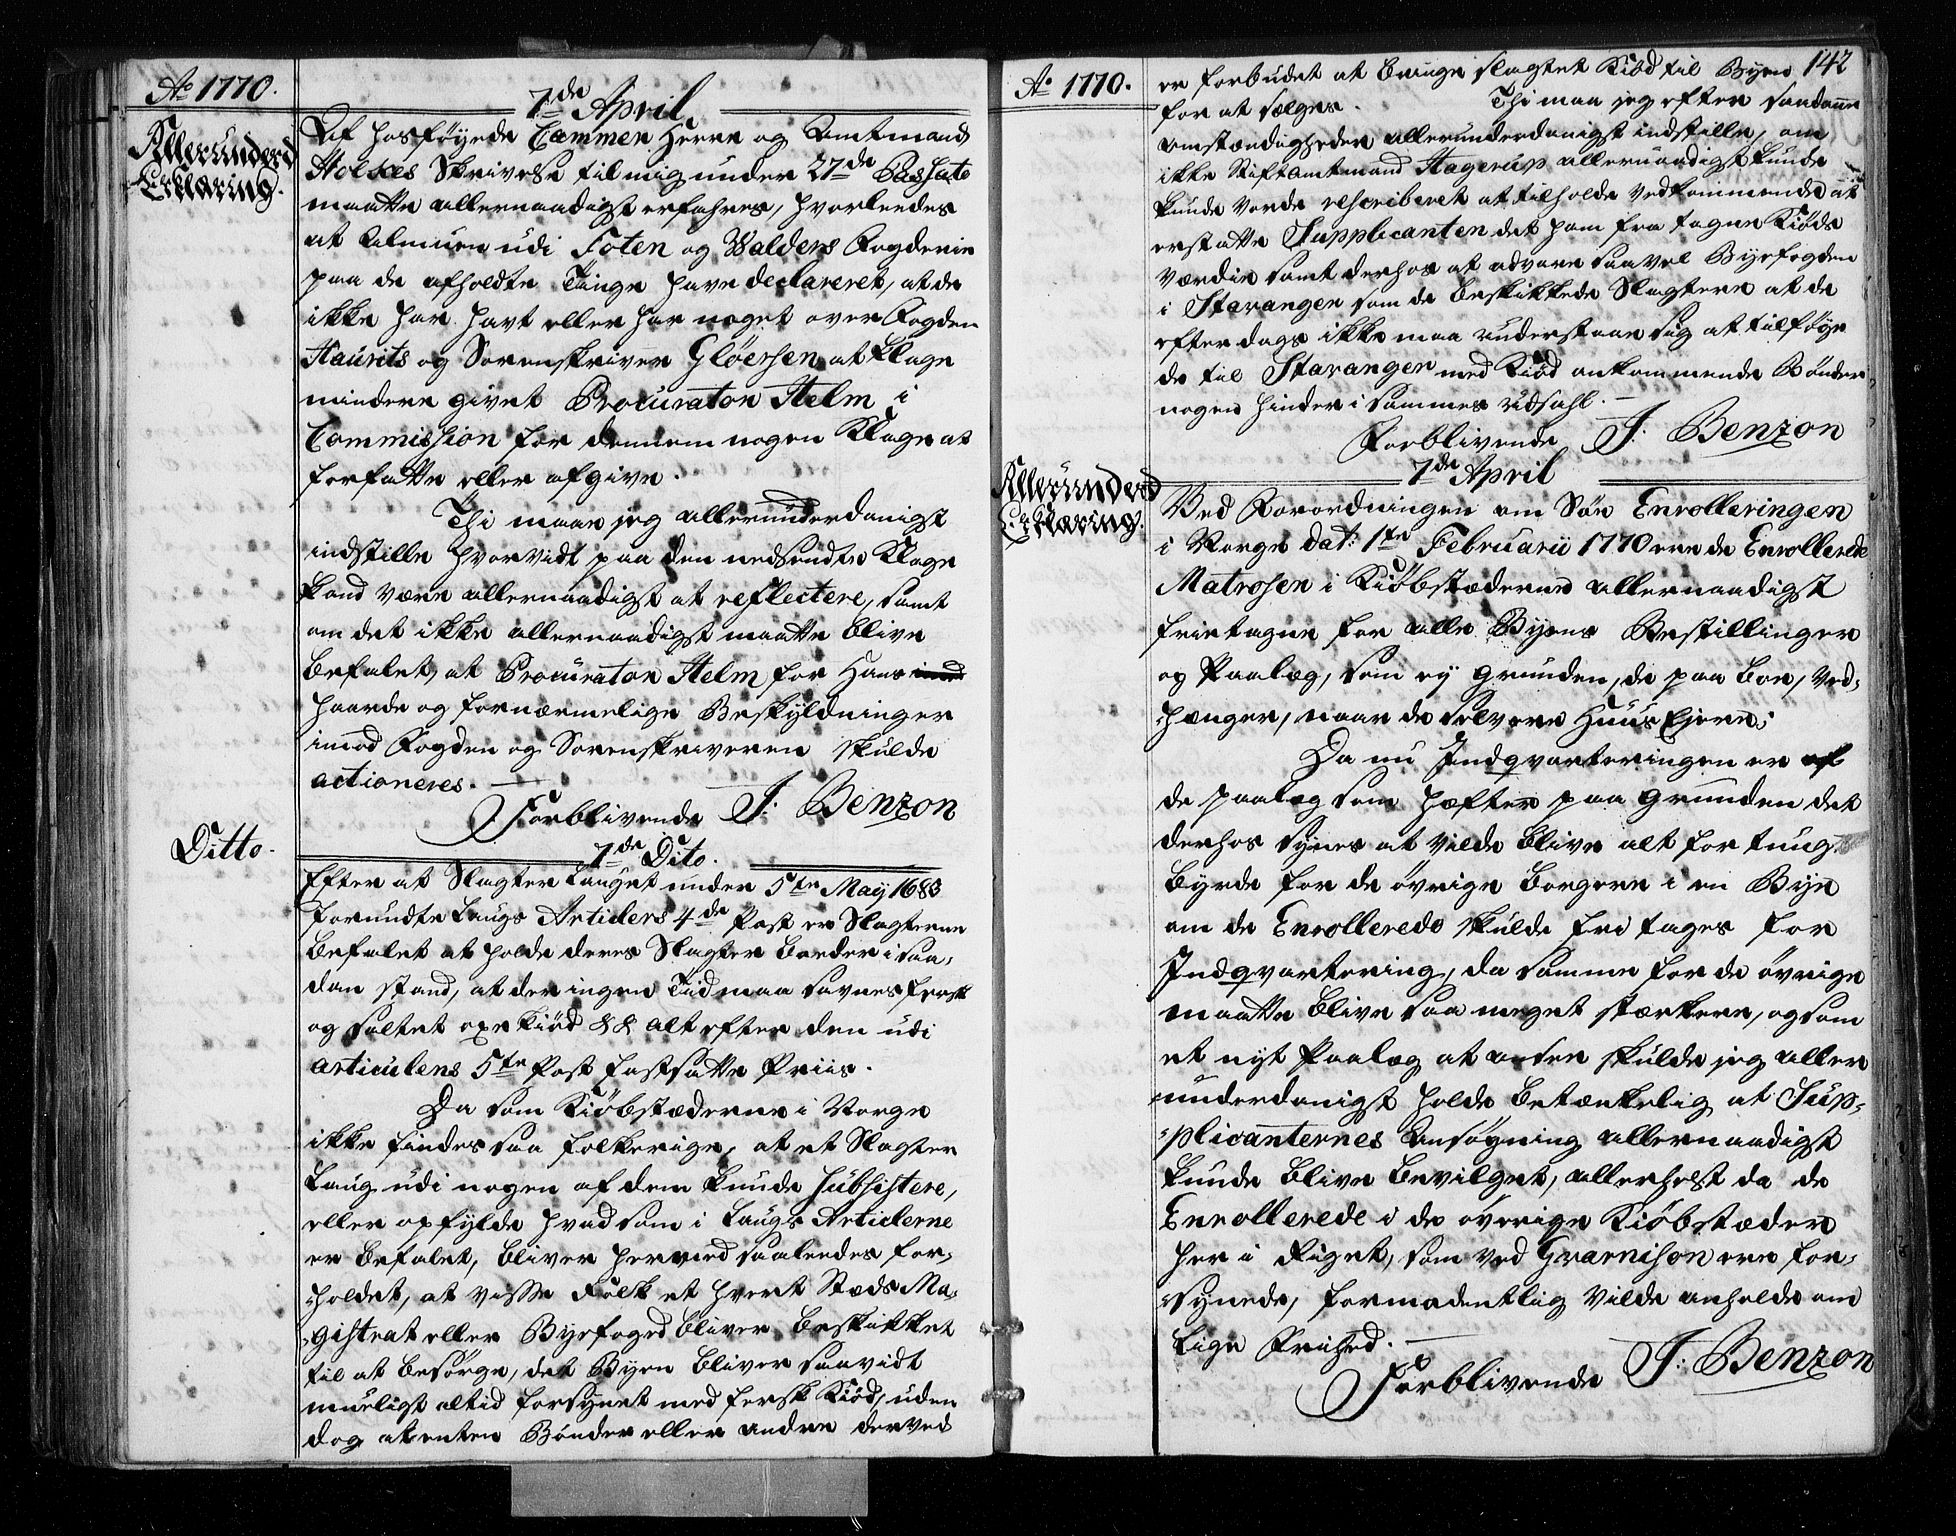 Ao 1770.
7de April
Allerunderd
Erklæring.
Af hosføyede Cammer Herre og Amtmand
Holckes Skrivelse til mig under 27de Passato
maatte allernaadigst erfahres, hvorleedes
at Almuen udi Toten og Walders Fogderie
paa de afholdte Tinge have declareret, at de
ikke har havt eller har noget over Fogden
Haurits og Sorenskriver Gløersen at klage
mindere givet Procurator Helm i
Commission for dennem nogen Klage at
forfatte eller afgive.
Thi maae jeg allerunderdanigst
indstille hvorvidt paa den nedsendte Klage
kand være allernaadigst at reflectere, samt
om det ikke allernaadigst maatte blive
befalet, at Procurator Helm for Hans imod
haarde og fornærmelige Beskyldninger
imod Fogden og Sorenskriveren skulde
actioneres.
Forblivende J. Benzon
7de Dito.
Ditto.
Efter at Slagter Lauget under 5te May 1683
forundte Laugs Articlers 4de Post er Slagterne
befalet at holde deres Slagter Boeder i saa-
dan stand, at der ingen Tiid maa savnes fersk
og saltet oxe Kiød && alt efter den udi
articulens 5te Post fastsatte Priis.
Da som Kiøbstæderne i Norge
ikke findes saa folkerige, at et Slagter
Laug udi nogen af dem kunde subsistere,
eller opfylde hvad som i Laugs Articlerne
er befalet, bliver herved saaleedes for-
holdet, at visse Folk et hvert Steds Ma-
gistrat eller Byefoged bliver beskikket
til at besørge, det Byen bliver saavidt
mueligt altid forsynet med fersk Kiød, uden
dog at enten Bønder eller andre derved
Ao 1770.
142
er forbudet at bringe slagtet Kiød til Byen
for at sælges. Thi maa jeg efter saadanne
omstændigheder allerunderdanigst indstille, om
ikke Stiftamtmand Hagerup allernaadigst kunde
kunde vorde rescriberet at tilholde vedkommende at
erstatte Supplicanten det ham fra tagne Kiøds
værdie samt derhos at advare saavel Byefogden
i Stavanger som de beskikkede Slagtere at de
efterdags ikke maa understaae sig at tilføye
de til Stavanger med Kiød ankommende Bønder
nogen hinder i sammes udsalg.
Forblivende J. Benzon
7de April
Allerunderd
Erklæring.
Ved Forordningen om Søe Enrolleringen
i Norge dat: 1te Februarii 1770 ere de Enrollerede
Matroser i Kiøbstæderne allernaadigst
frietagne for alle Byens Bestillinger
og Paalæg, som ey Grunden, de paa boe, ved-
hænger, naar de selv ere Huus Ejere;
Da nu Indqvarteringen er af
de paalæg som hæfter paa Grunden det
derhos synes at vilde blive alt for tung
Byrde for de øvrige borgere i en Bye
om de Enrollerede skulde fri tages for
Indqvartering, da samme for de øvrige
maatte blive saa meget stærkere, og som
et nyt Paalæg at ansee skulde jeg aller
underdanigst holde betænkelig at Sup-
plicanternes Ansøgning allernaadigst
kunde blive bevilget, allerhelst da de
Enrollerede i de øvrige Kiøbstæder
her i Riget, som ved Gvarnison ere for-
synede, formodentlig vilde anholde om
lige Frihed.
Forblivende J. Benzon